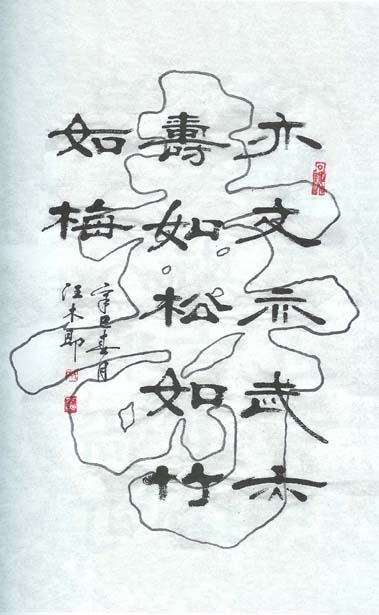 亦文亦武亦
壽如松如竹
如梅
辛巳春月
汪木